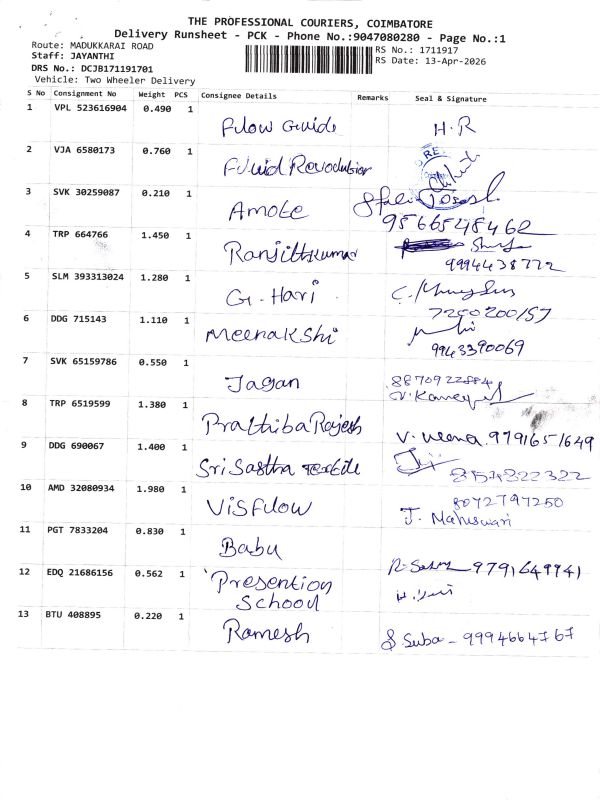 THE PROFESSIONAL COURIERS, COIMBATORE
Delivery Runsheet - PCK - Phone No.:9047080280 - Page No.:1
Route: MADUKKARAI ROAD
Staff: JAYANTHI
DRS No.: DCJB171191701
Vehicle: Two Wheeler Delivery
RS No.: 1711917
RS Date: 13-Apr-2026
S No Consignment No Weight PCS Consignee Details Remarks Seal & Signature
1 VPL 523616904 0.490 1
Flow Guide H.R
2 VJA 6580173 0.760 1
Fluid Revodution RE
3 SVK 30259087 0.210 1
Amote
9566548462
4 TRP 664766 1.450 1
Ranjithkumar
9994438772
5 SLM 393313024 1.280 1
G. Hari
7260200157
6 DDG 715143 1.110 1
Meenakshi
9943390069
7 SVK 65159786 0.550 1
Jagan 8870922884
8 TRP 6519599 1.380 1
Prathiba Rajesh V. Meena. 9791651649
9 DDG 690067 1.400 1
Sri Sastha Textile
10 AMD 32080934 1.980 1
Visflow 8072797250
J. Maheswari
11 PGT 7833204 0.830 1
Babu
12 EDQ 21686156 0.562 1
Presention
School
13 BTU 408895 0.220 1
Ramesh S. Suba - 9994664767